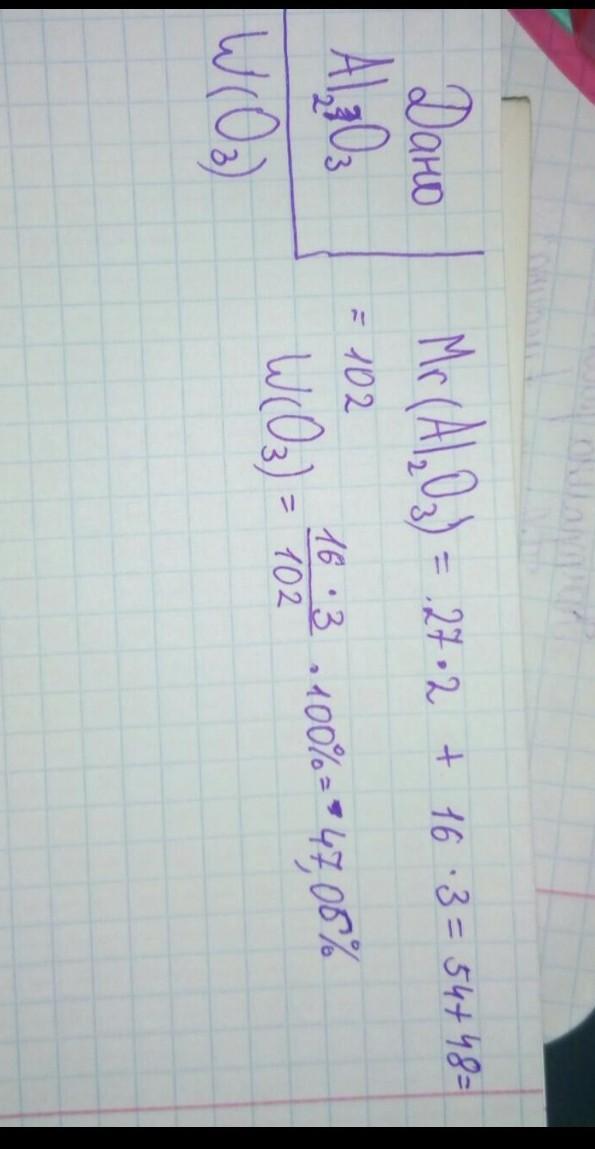 Дано
Al₂O₃
W(O₃)
Mr(Al₂O₃) = 27·2 + 16·3 = 54+48=
= 102
W(O₃) = 16·3/102 · 100% = 47,05%